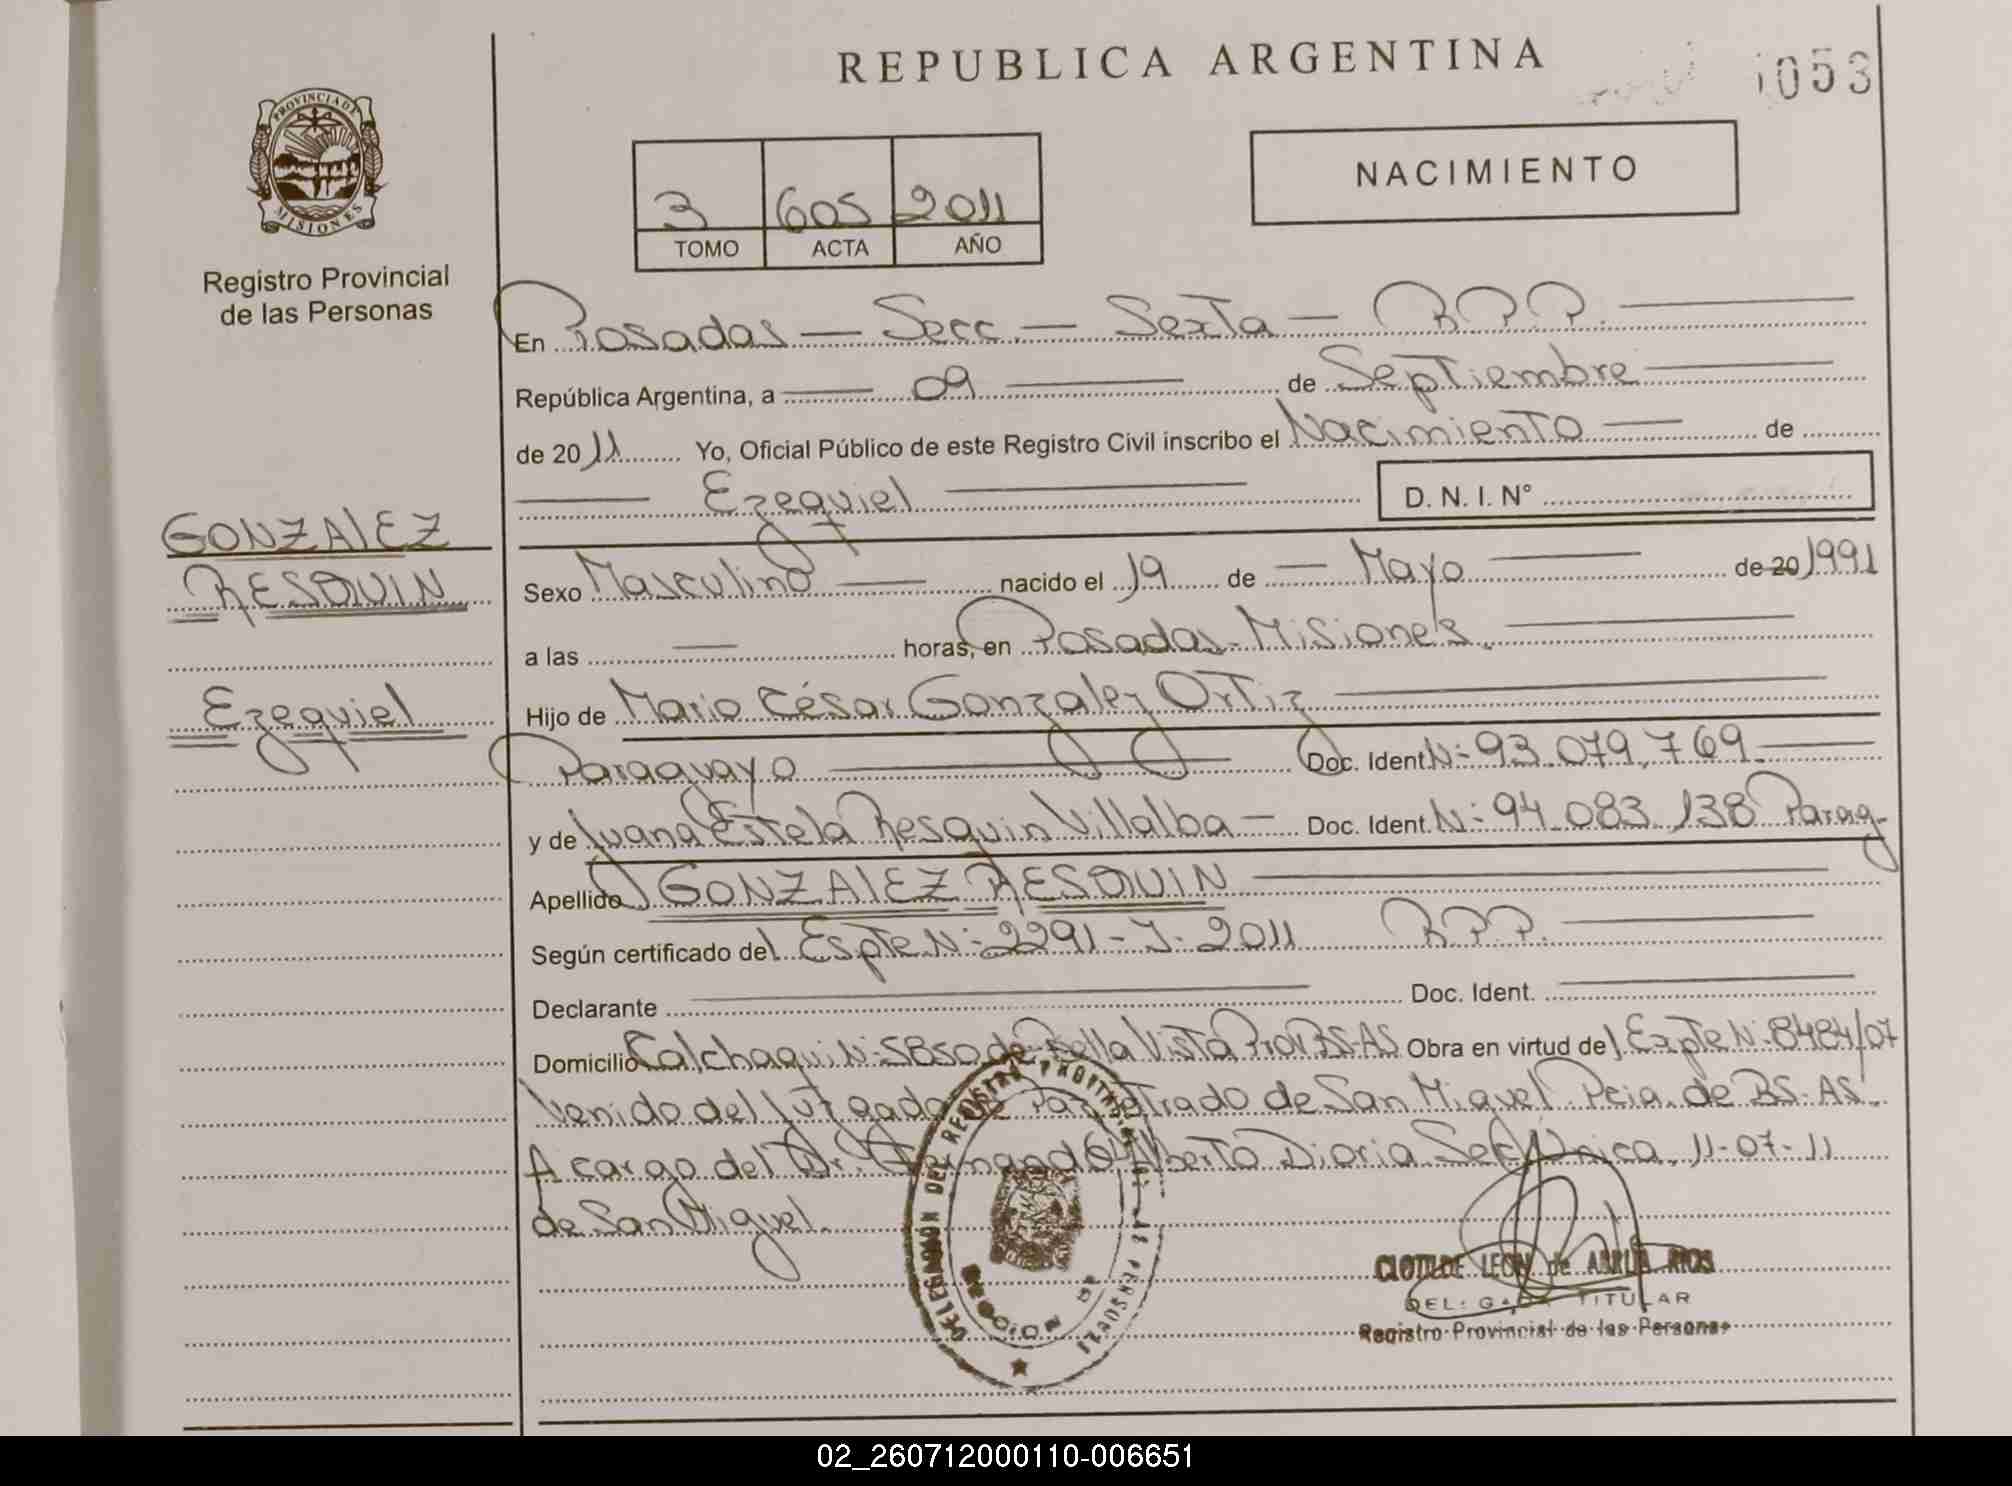 REPUBLICA ARGENTINA
053
PROVINCIA DE
MISIONES
Registro Provincial
de las Personas
3 605 2011
TOMO ACTA AÑO
NACIMIENTO
En Posadas — Secc. — Sexta — R.P.P.
República Argentina, a — 09 — de Septiembre
de 2011 Yo, Oficial Público de este Registro Civil inscribo el Nacimiento — de
Ezequiel — D. N. I. N°
GONZALEZ
RESQUIN
Ezequiel
Sexo Masculino — nacido el 19 de — Mayo — de 20 1991
a las — horas, en Posadas-Misiones.
Hijo de Mario César Gonzalez Ortiz
Paraguayo — Doc. Ident. N: 93.079.769.
y de Juana Estela Resquin Villalba — Doc. Ident. N: 94.083.138 Parag-
Apellido GONZALEZ RESQUIN
Según certificado del Expte N: 2291-J-2011 R.P.P.
Declarante — Doc. Ident. —
Domicilio Calchaqui N: 5850 de Bella Vista Prov BS-AS Obra en virtud del Expte N: 8484/07
Venido del Juzgado de Paz Letrado de San Miguel Pcia. de BS-AS.
A cargo del Dr. Fernando Alberto Dioria Sec. Única. 11-07-11
de San Miguel.
DELEGACIÓN DEL REGISTRO PROVINCIAL DE LAS PERSONAS
SECCION 6ª
CLOTILDE LEON de ABRLA RIOS
DELEGADA TITULAR
Registro Provincial de las Personas
02_260712000110-006651